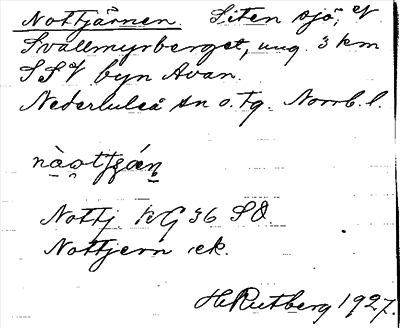 Nottjärnen. Liten sjö, V
Svallmyrberget, ung. 3 km
SSV byn Avan.
Nederluleå sn o. tg. Norrb. l.
Nottj. HG 36 SO.
Nottjern ek.
H Rutberg 1927.